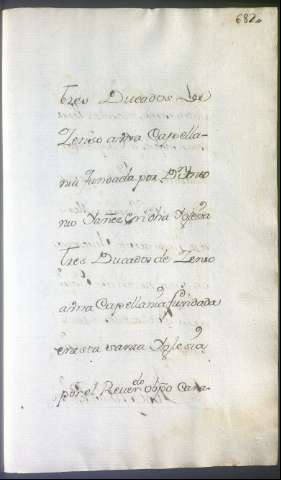 682
tres Ducados de
Zenso a una Capella-
nia fundada por D.n
nio Yañez en dha Yglesia
Tres Ducados de Zenso
a una Capellania fundada
en esta santa Yglesia
por el Reverdo obpo Cara-